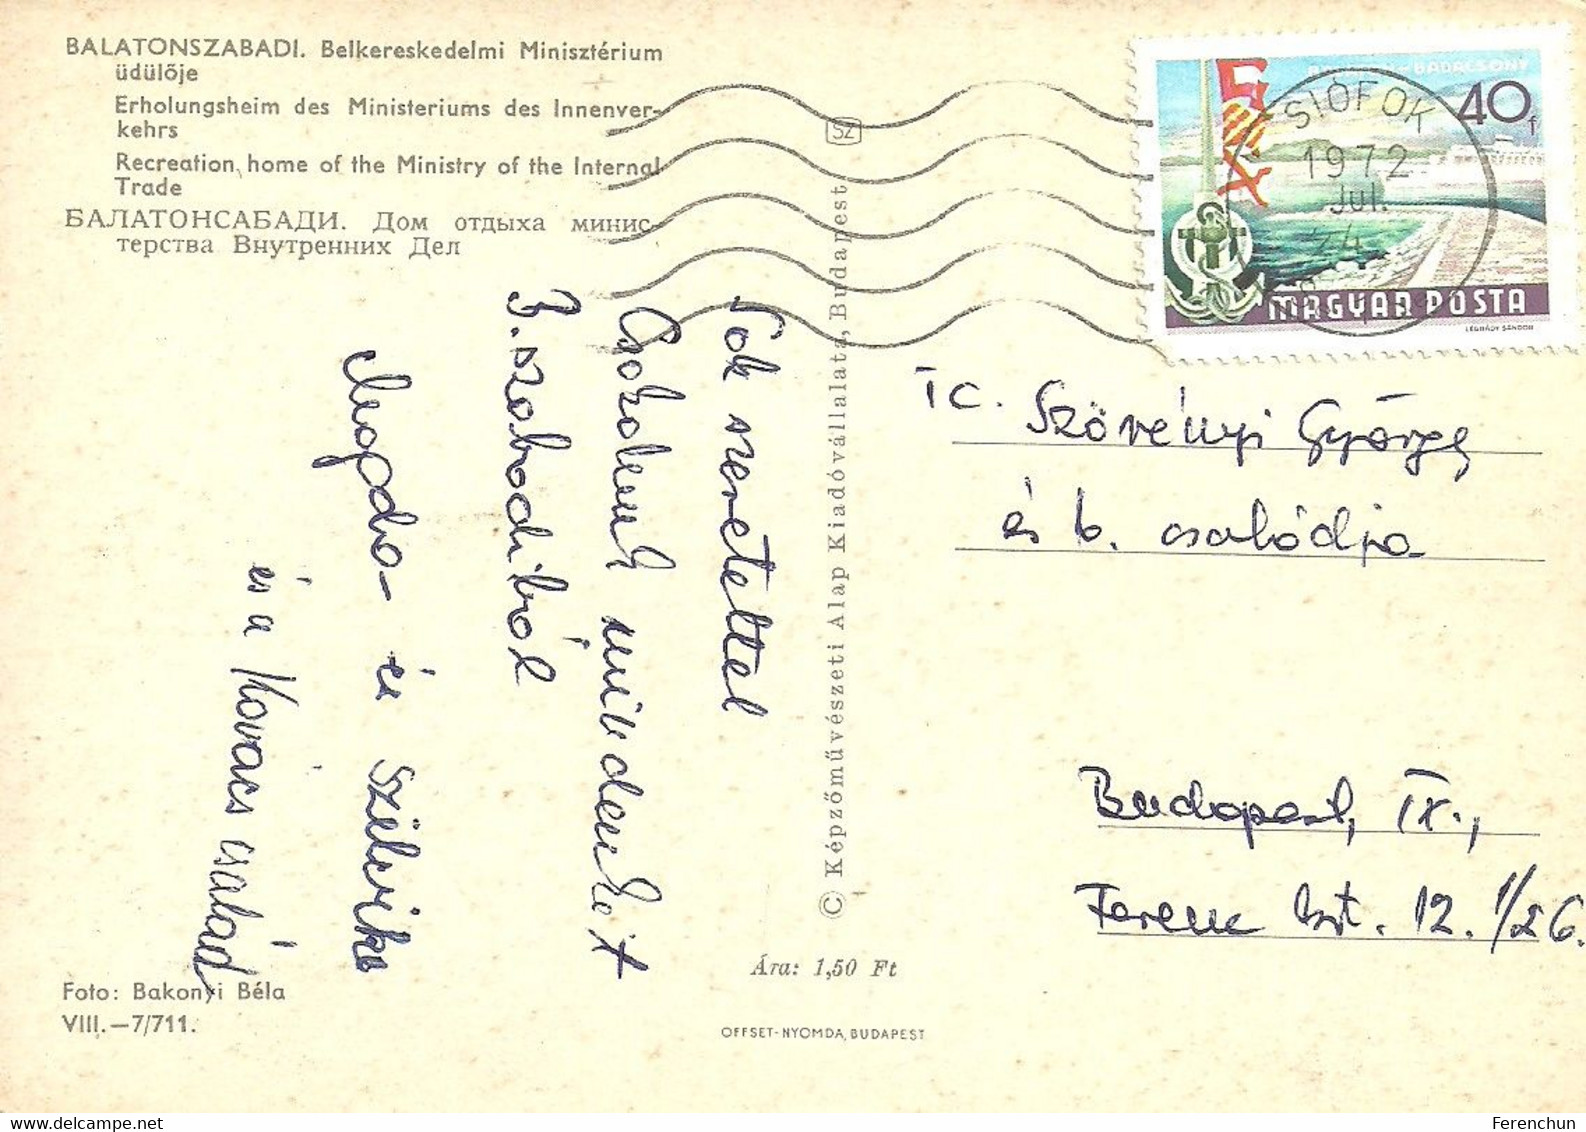 BALATONSZABADI. Belkereskedelmi Minisztérium
üdülője
Erholungsheim des Ministeriums des Innenver-
kehrs
Recreation home of the Ministry of the Internal
Trade
БАЛАТОНСАБАДИ. Дом отдыха минис-
терства Внутренних Дел
Sok szeretettel
Csókolunk mindenkit
B.szabadiból
Magda- és Szilvike
és a Kovács család
Foto: Bakonyi Béla
VIII.—7/711.
SZ
© Képzőművészeti Alap Kiadóvállalata, Budapest
Ára: 1,50 Ft
OFFSET-NYOMDA, BUDAPEST
BADACSONY
40f
SIÓFOK
1972
Jul.
MAGYAR POSTA
LÉGRÁDY SÁNDOR
Tc. Szövényi György
és b. családja
Budapest, IX.,
Ferenc krt. 12. 1/26.
Ferenchun